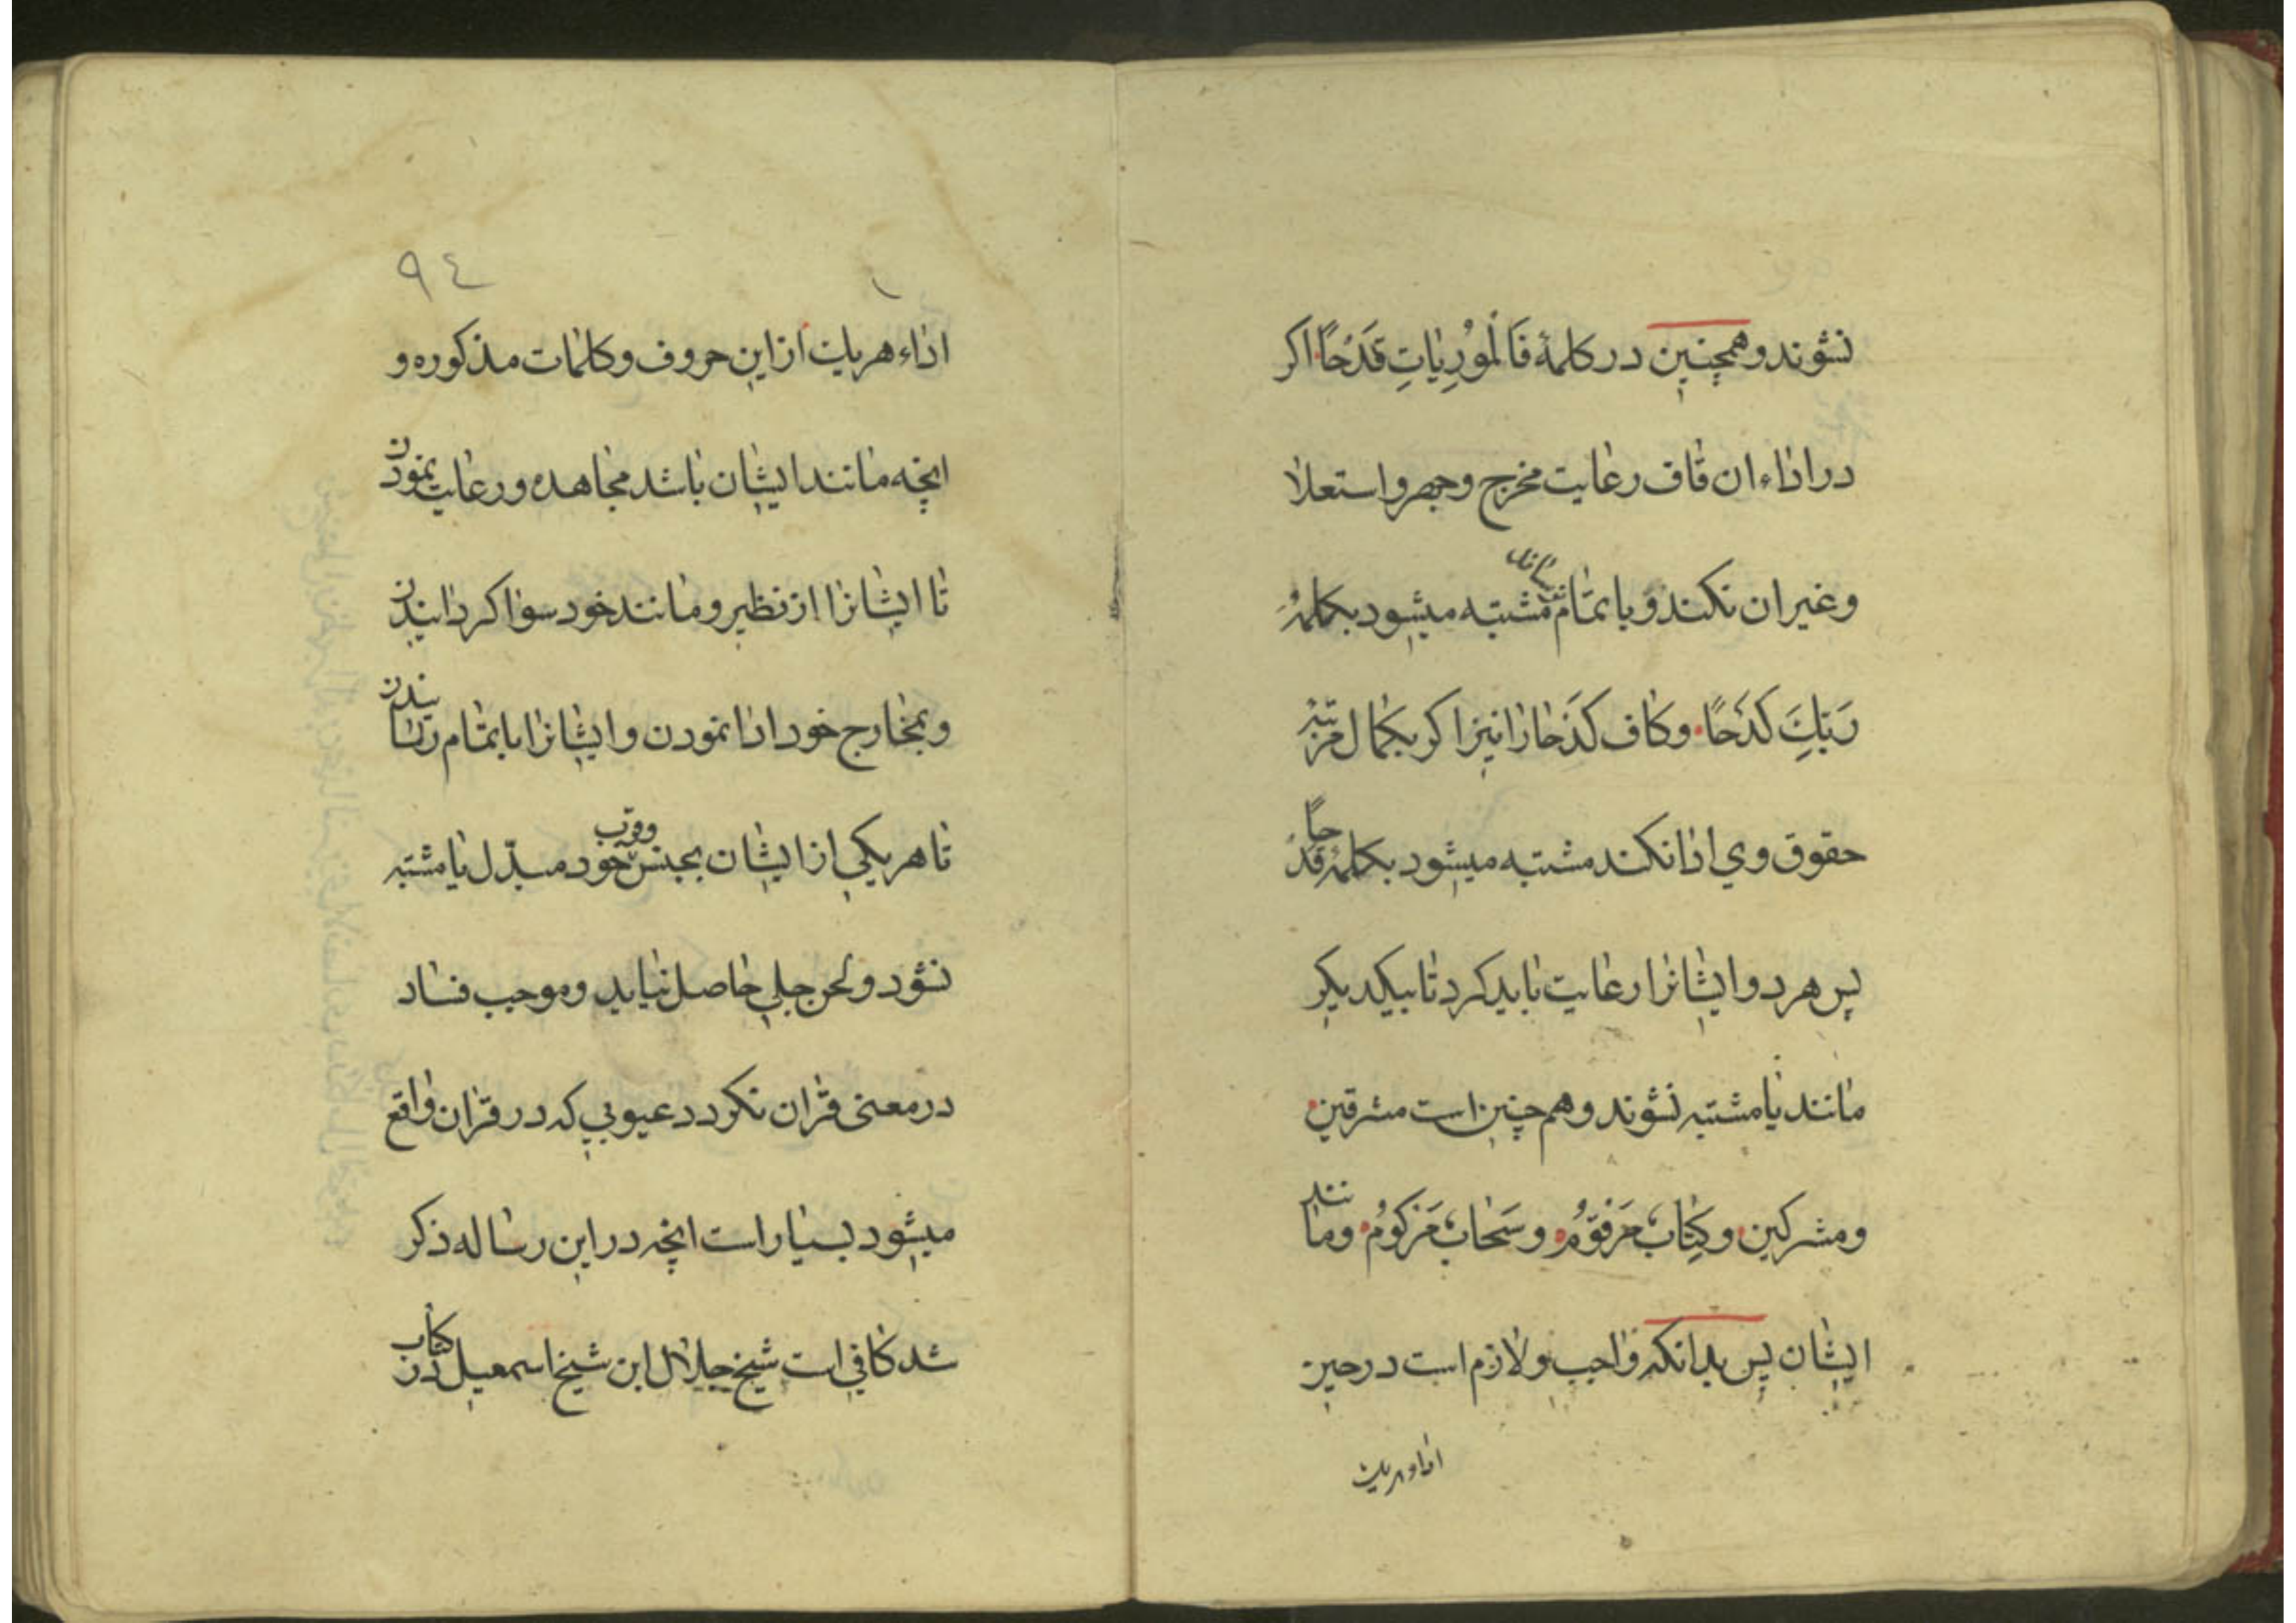 نشوند و همچنین در کلمهٔ فَالْمُورِیٰاتِ قَدْحًا اکر
در اداء ان قاف رعایت مخرج وجهر واستعلا
وغیر ان نکند و یا بتمام نرساند مشتبه میشود بکلمهٔ
رَبِّكَ كَدْحًا وکاف کَدْحًا را نیز اکر بکمال مرتبه
حقوق وی ادا نکند مشتبه میشود بکلمهٔ قدحًا
پس هر دو ایشانرا رعایت باید کرد تا بیکدیکر
مانند یا مشتبه نشوند و هم چنین است مشرقین
ومشرکین وکِتابٌ مَرْقُومٌ وسَحابٌ مَرْکُومٌ ومانند
ایشان پس بدانکه واجب ولازم است در حین
اداء هریك
٩٤
اداء هریك از این حروف وکلمات مذکوره و
انچه مانند ایشان باشد مجاهده ورعایت نمودن
تا ایشانرا از نظیر ومانند خود سوا کردانیدن
وبمخارج خود ادا نمودن وایشانرا بابتمام رسانیدن
تا هر یکی از ایشان بجنس وقرب خود مبدّل یا مشتبه
نشود ولحن جلی حاصل نیاید وموجب فساد
در معنی قران نکردد عیوبی که در قران واقع
میشود بسیار است انچه در این رساله ذکر
شد کافی است شیخ جلال ابن شیخ اسمعیل در کتاب